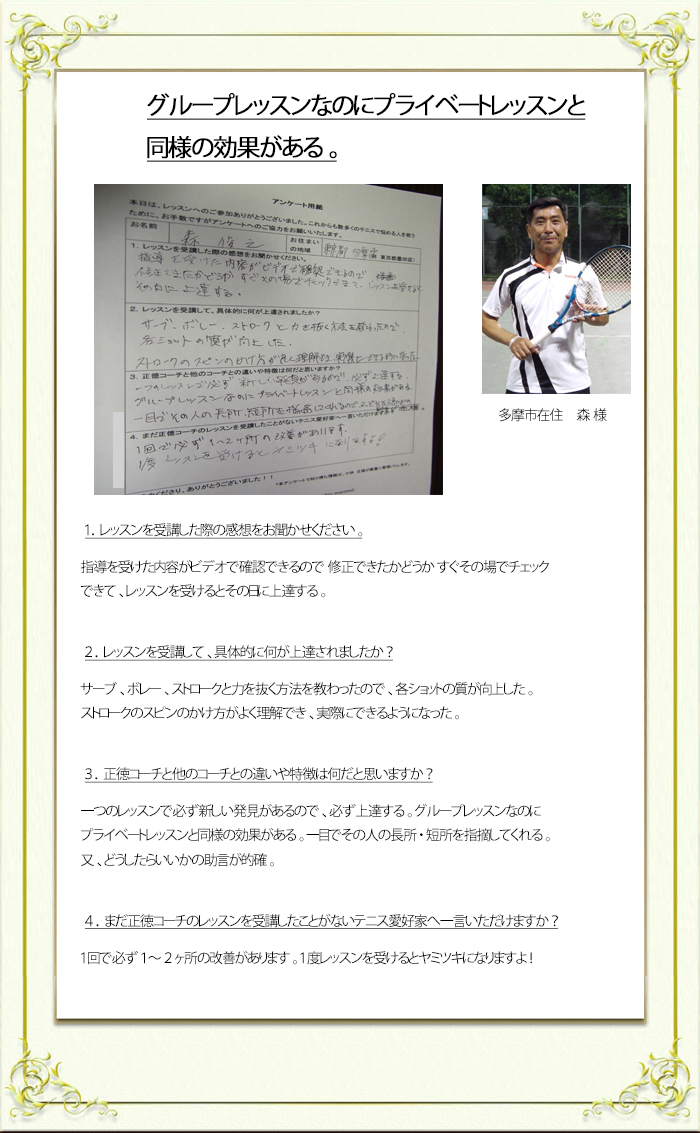 グループレッスンなのにプライベートレッスンと
同様の効果がある。
アンケート用紙
本日は、レッスンへのご参加ありがとうございました。これからも数多くのテニスで悩める人を救う
ために、お手数ですがアンケートへのご協力をお願いいたします。
お名前
お住まい
の地域
1. レッスンを受講した際の感想をお聞かせください。
指導を受けた内容がビデオで確認できるので
修正できたかどうか すぐその場でチェックできて、レッスンを受けると
その日に上達する。
2. レッスンを受講して、具体的に何が上達されましたか？
サーブ、ボレー、ストロークと力を抜く方法を教わったので
各ショットの質が向上した。
ストロークのスピンのかけ方がよく理解でき、実際にできるようになった。
3. 正徳コーチと他のコーチとの違いや特徴は何だと思いますか？
一つのレッスンで必ず新しい発見があるので、必ず上達する。
グループレッスンなのにプライベートレッスンと同様の効果がある
一目でその人の長所、短所を指摘してくれる
4. まだ正徳コーチのレッスンを受講したことがないテニス愛好家へ一言いただけますか
1回で必ず1〜2ヶ所の改善があります。
1度レッスンを受けるとヤミツキになりますよ!
ありがとうございました！！
多摩市在住　森 様
1. レッスンを受講した際の感想をお聞かせください。
指導を受けた内容がビデオで確認できるので 修正できたかどうか すぐその場でチェック
できて、レッスンを受けるとその日に上達する。
2. レッスンを受講して、具体的に何が上達されましたか？
サーブ、ボレー、ストロークと力を抜く方法を教わったので、各ショットの質が向上した。
ストロークのスピンのかけ方がよく理解でき、実際にできるようになった。
3. 正徳コーチと他のコーチとの違いや特徴は何だと思いますか？
一つのレッスンで必ず新しい発見があるので、必ず上達する。グループレッスンなのに
プライベートレッスンと同様の効果がある。一目でその人の長所・短所を指摘してくれる。
又、どうしたらいいかの助言が的確。
4. まだ正徳コーチのレッスンを受講したことがないテニス愛好家へ一言いただけますか？
1回で必ず1〜２ヶ所の改善があります。1度レッスンを受けるとヤミツキになりますよ!